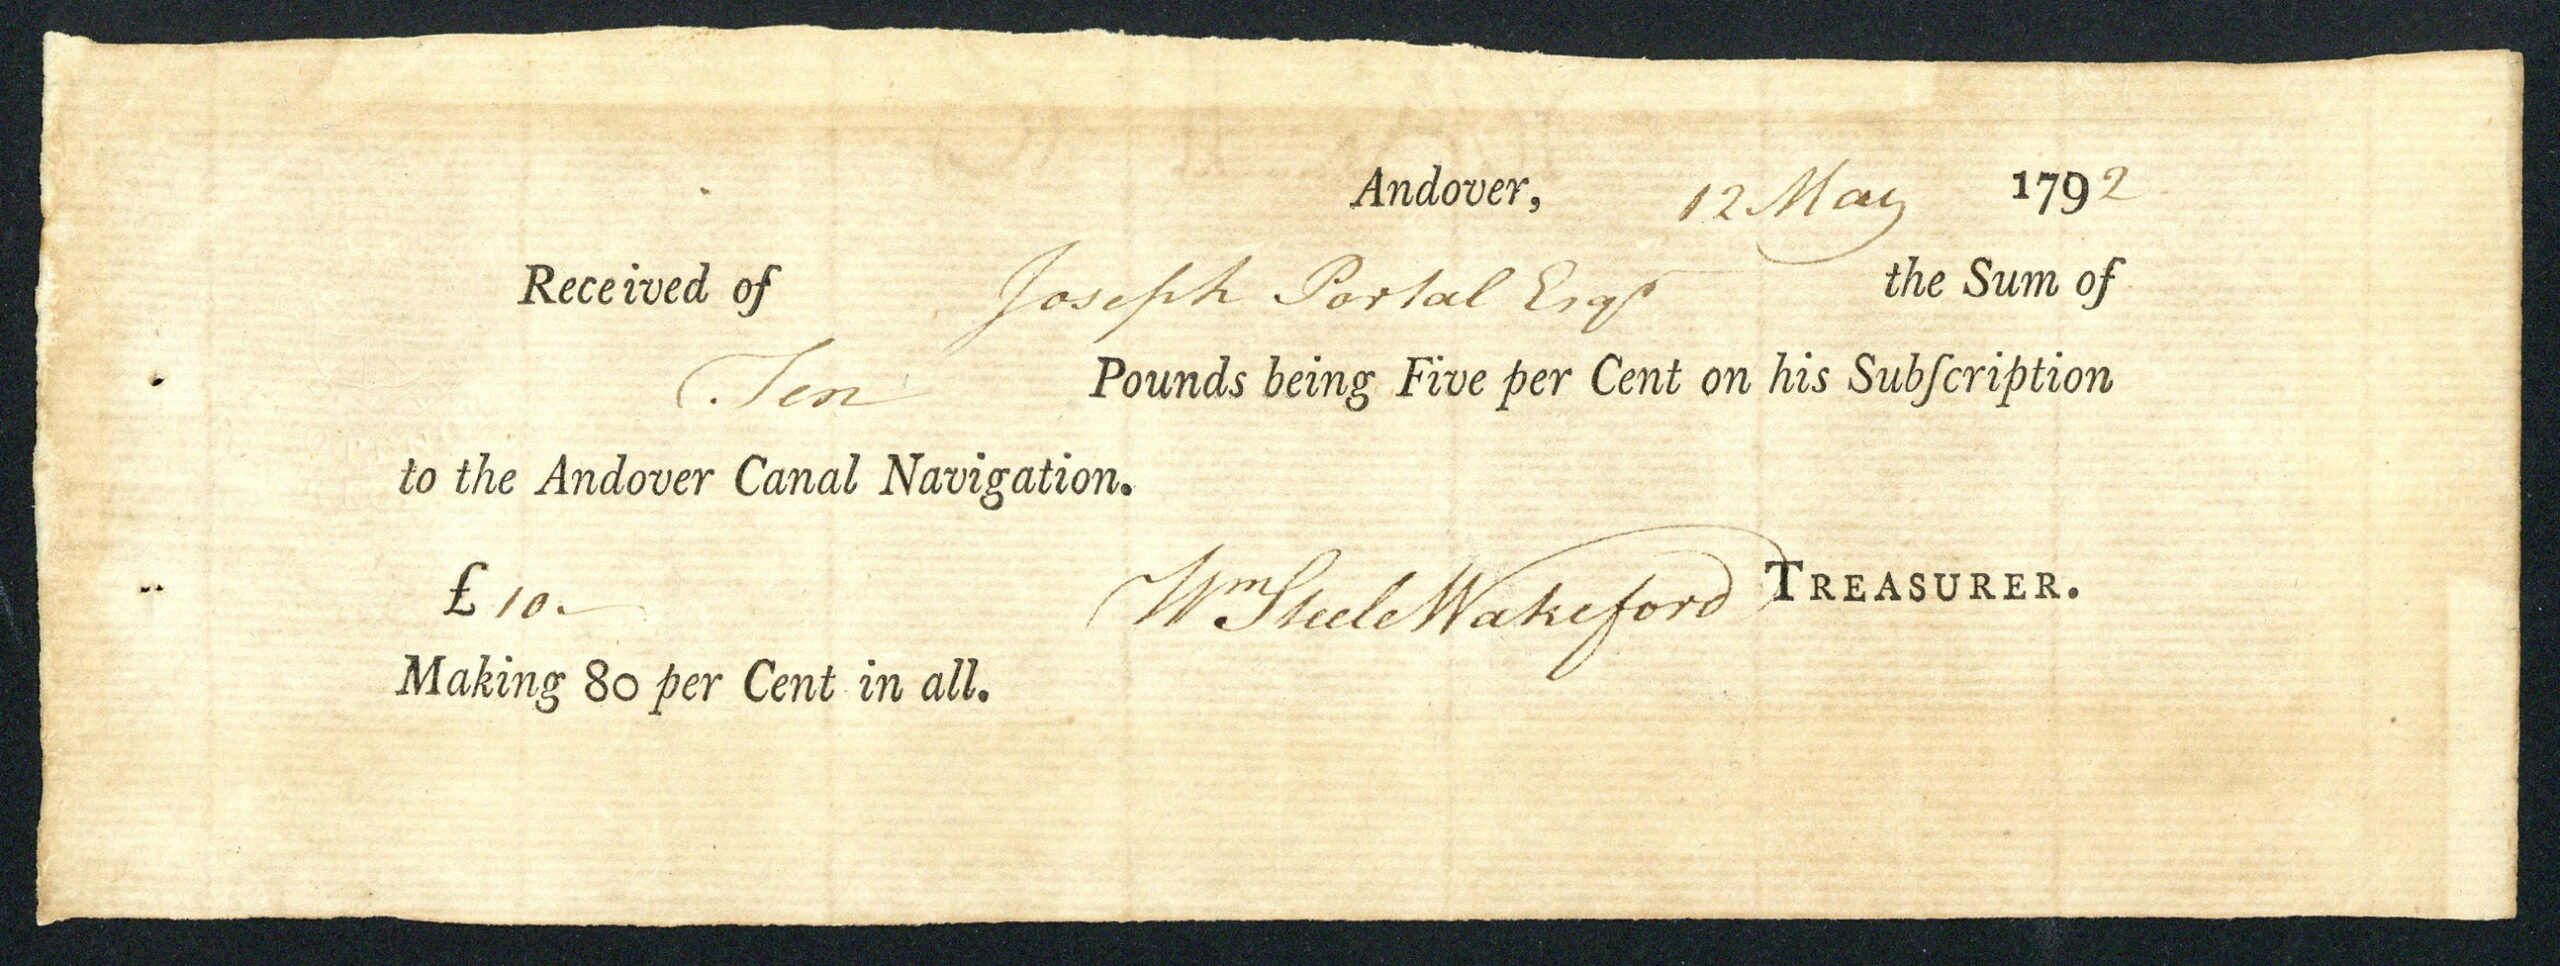 Andover, 12 May 1792
Received of Joseph Portal Esqr the Sum of
Ten Pounds being Five per Cent on his Subſcription
to the Andover Canal Navigation.
£ 10.— Wm Steele Wakeford TREASURER.
Making 80 per Cent in all.